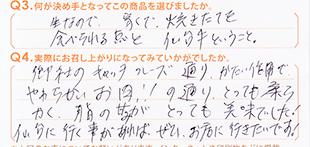 Q3.何が決め手となってこの商品を選びましたか。
生なので、家で、焼きたてを
食べられる点と 仙台牛ということ。
Q4.実際にお召し上がりになってみていかがでしたか。
御社のキャッチフレーズ通り、かたい仕事で、
やわらかいお肉!!の通り、とっても柔ら
かく、脂の甘みがとっても美味でした!
仙台に行く事があれば、ぜひ、お店に行きたいです!